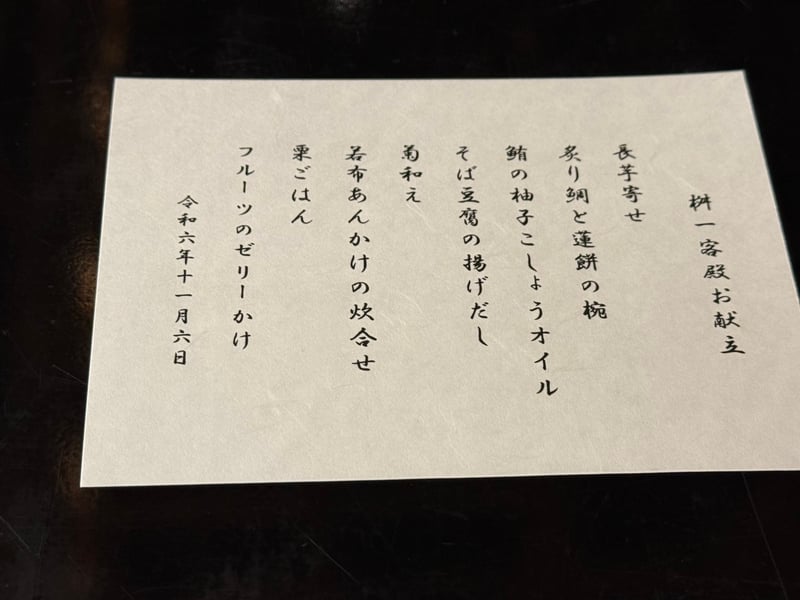 桝一客殿お献立
長芋寄せ
炙り鯛と蓮餅の椀
鮪の柚子こしょうオイル
そば豆腐の揚げだし
菊和え
若布あんかけの炊合せ
栗ごはん
フルーツのゼリーかけ
令和六年十一月六日